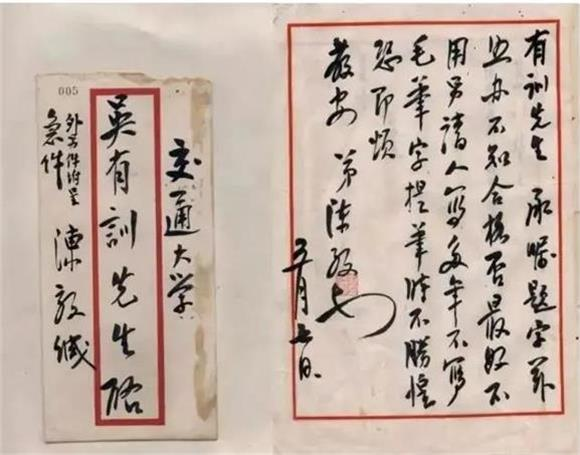 005
交通大学
吳有訓先生啓
外公件附呈
急件 陳毅缄
有训先生 承嘱题字
办不知合格否最好不
用另请人写多年不写
毛筆字提筆時不勝惶
恐即颂
教安 弟陳毅
五月七日